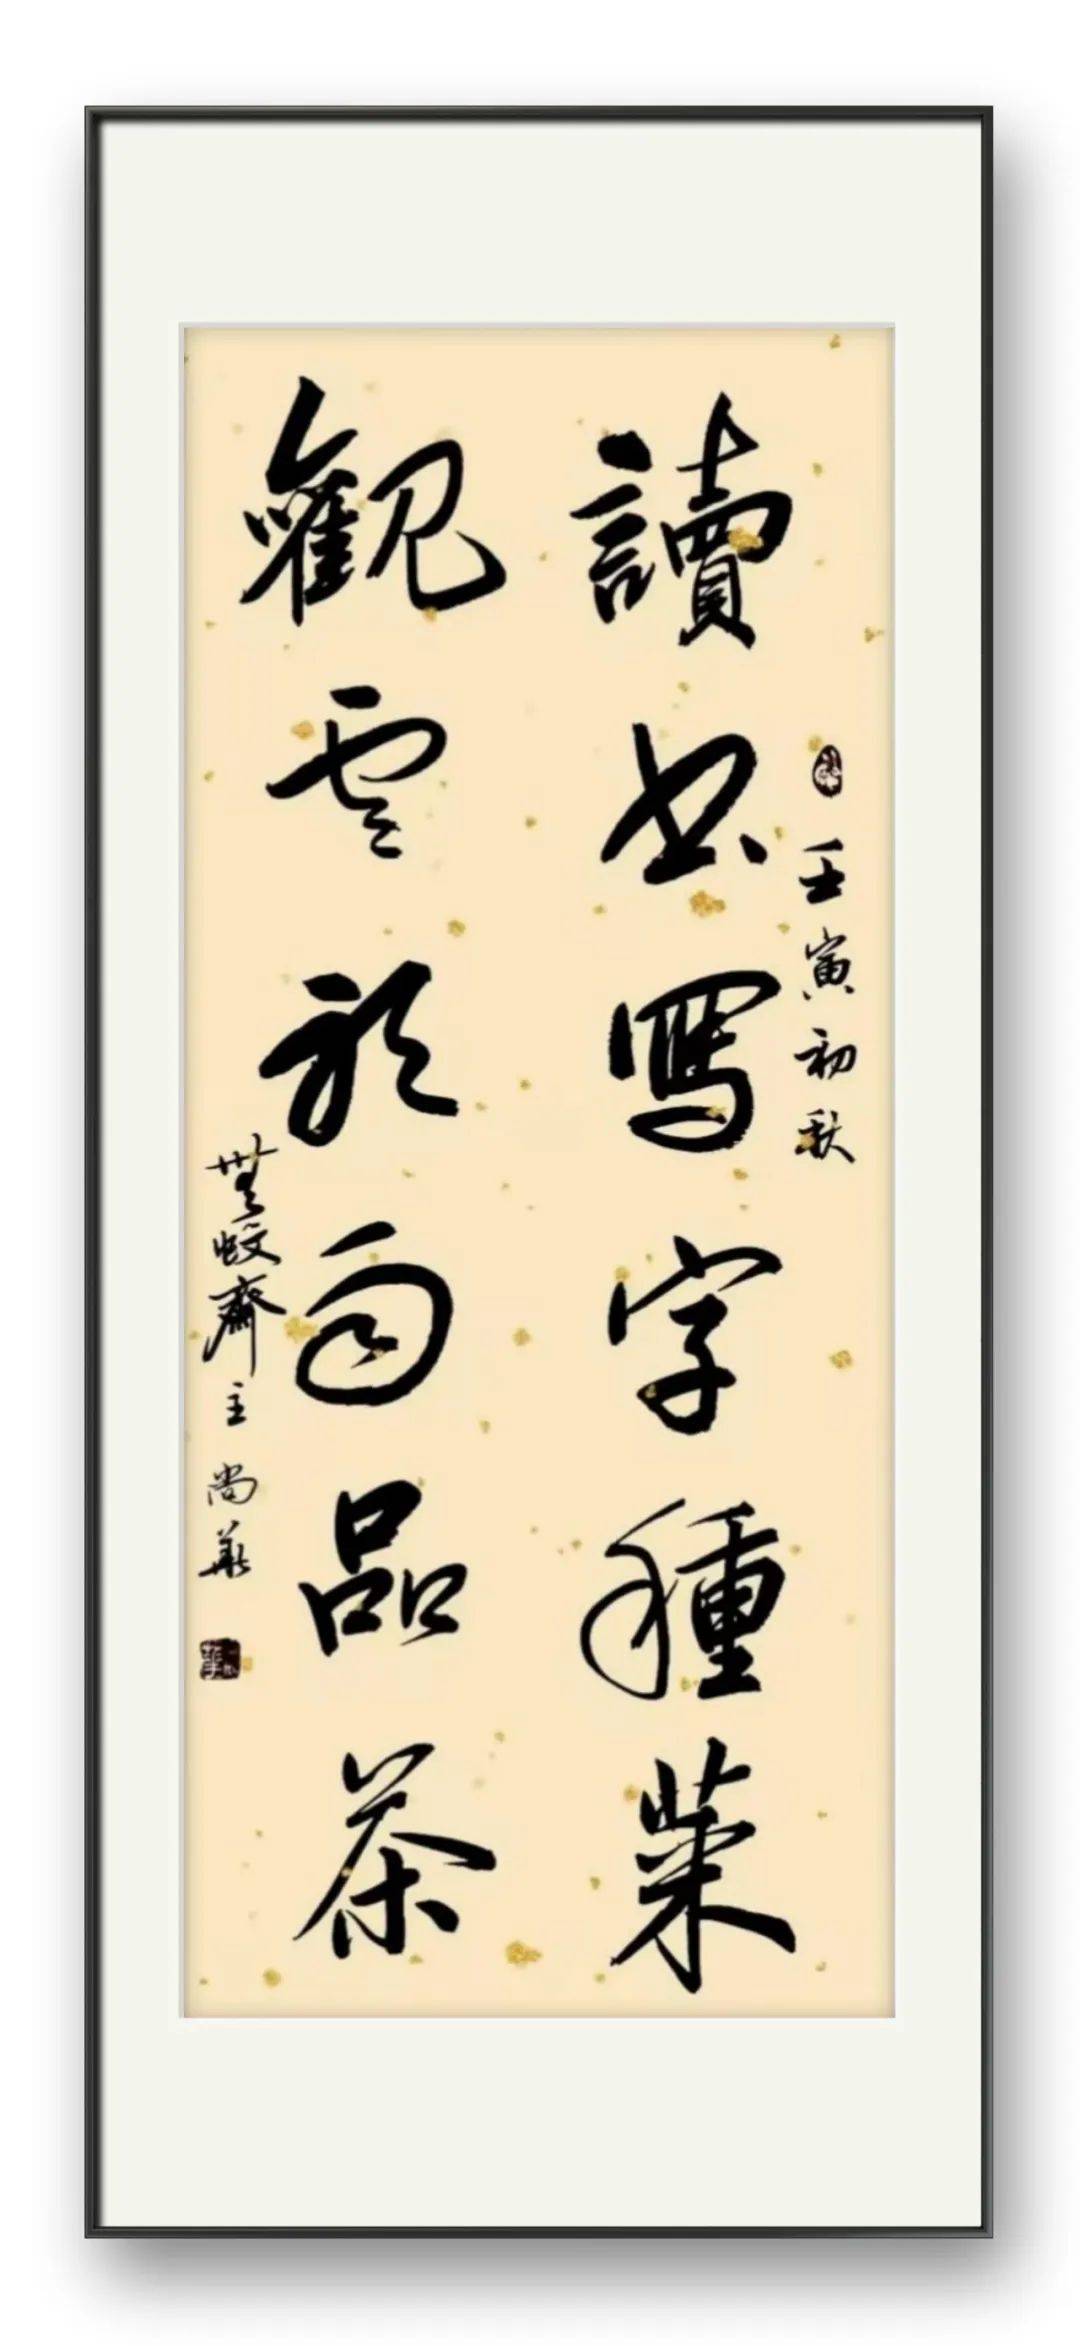 壬寅初秋
讀書寫字種菜
觀雲聽雨品茶
無蚊齋主尚華